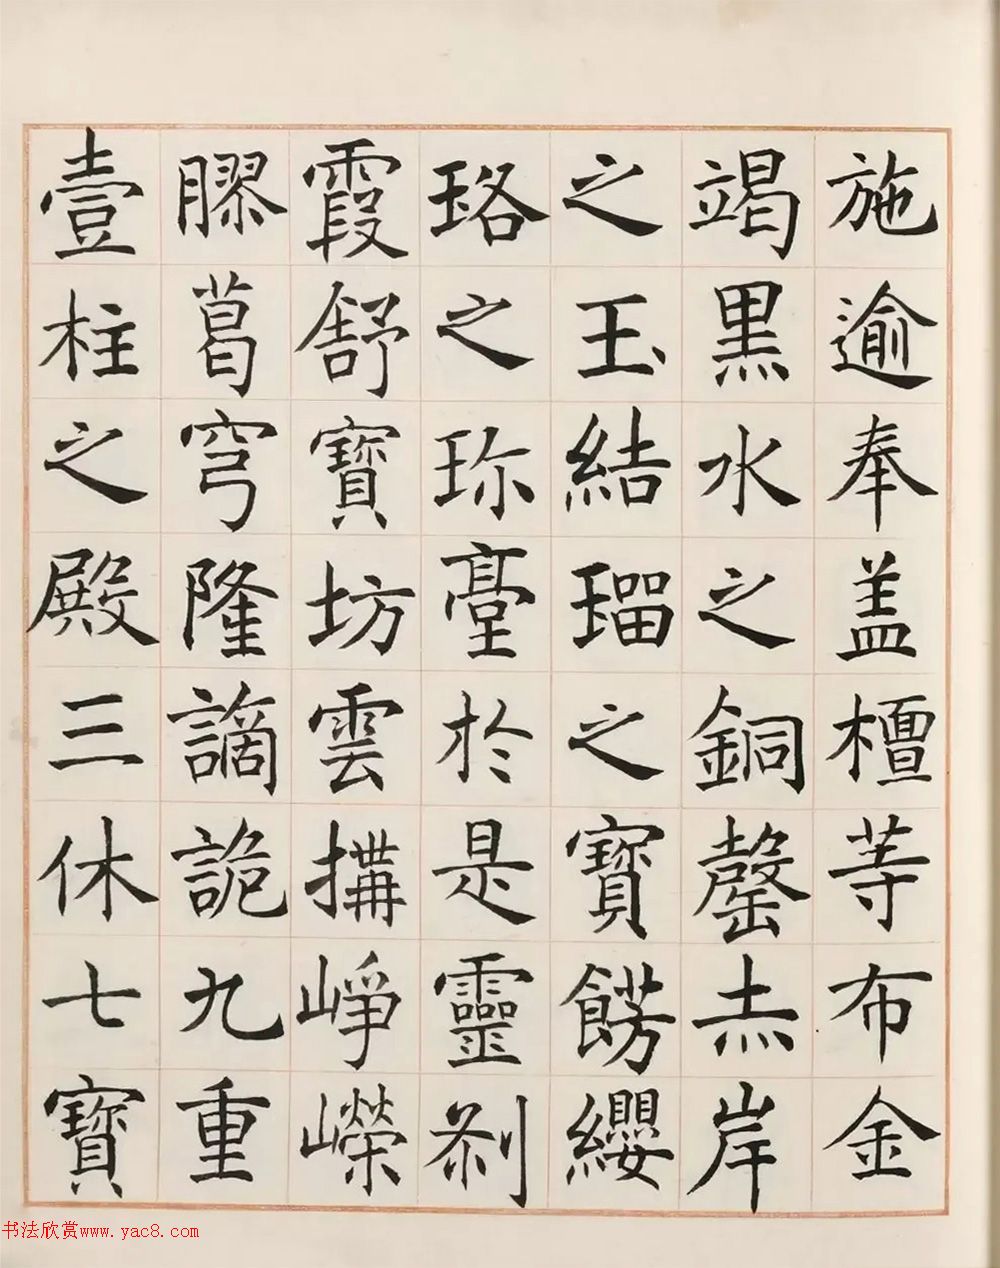 施逾奉盖檀等布金
竭黑水之銅罄赤岸
之玉結瑠之寶餝纓
珞之珎臺於是靈刹
霞舒寶坊雲搆崢嶸
膠葛穹隆譎詭九重
壹柱之殿三休七寶
书法欣赏www.yac8.com